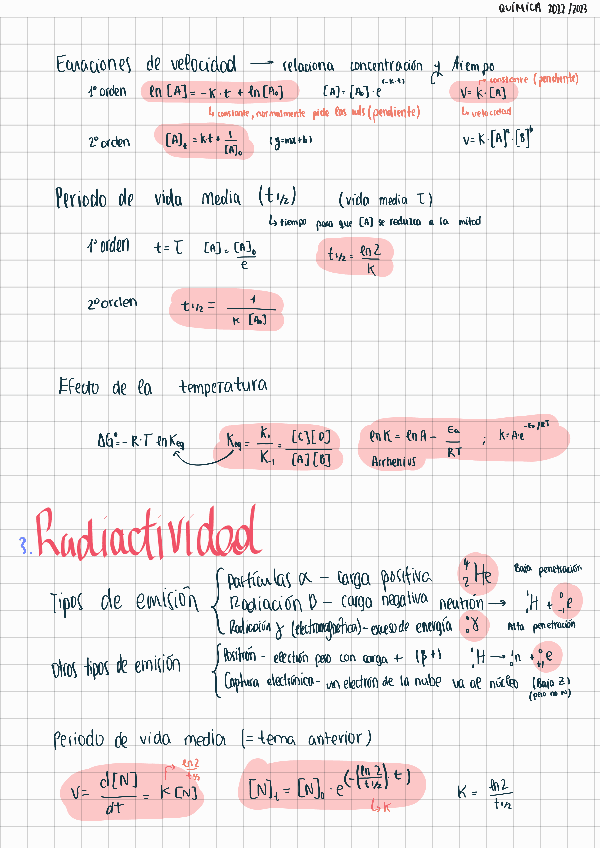 QUÍMICA 2022/2023
Ecuaciones de velocidad → relaciona concentración y tiempo
1º orden ln [A] = -K·t + ln[A₀] [A] = [A₀]·e^(-K·t) V = K·[A] → constante (pendiente)
↳ constante, normalmente pide las uds (pendiente) ↳ velocidad
2º orden [A]t = Kt + 1/[A]₀ (y=mx+b) V = K·[A]ᵃ·[B]ᵇ
Periodo de vida media (t1/2) (vida media τ)
↳ tiempo para que [A] se reduzca a la mitad
1º orden t = τ [A] = [A]₀/e t1/2 = ln2/K
2º orden t1/2 = 1/K[A₀]
Efecto de la temperatura
ΔG° = -R·T ln Keq Keq = K₁/K₋₁ = [C][D]/[A][B] ln K = ln A - Ea/RT ; K = A·e^(-Ea/RT)
Arrhenius
3. Radiactividad
Tipos de emisión
Partículas α - carga positiva ⁴₂He Baja penetración
Radiación β - carga negativa neutrón → ¹₁H + ⁰₋₁e
Radiación γ (electromagnética) - exceso de energía ⁰₀γ Alta penetración
Otros tipos de emisión
Positrón - electrón pero con carga + (β+) ¹₁H → ¹₀n + ⁰₊₁e
Captura electrónica - un electrón de la nube va al núcleo (Baja Z)
(pero no N)
Periodo de vida media (= tema anterior)
V = d[N]/dt = K[N] → ln2/t1/2 [N]t = [N]₀·e^(-(ln2/t1/2)·t) K = ln2/t1/2
↳ K